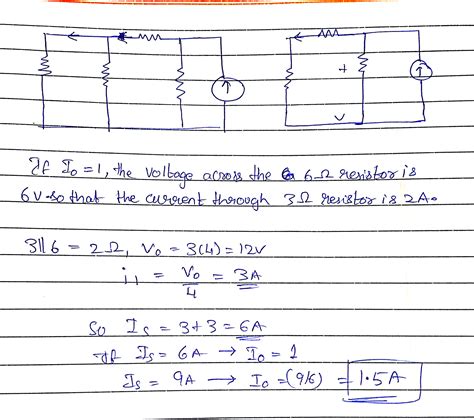 +
If I₀ = 1, the voltage across the 6Ω resistor is
6V so that the current through 3Ω resistor is 2A.
3||6 = 2Ω, V₀ = 3(4) = 12V
i₁ = V₀/4 = 3A
So Iₛ = 3+3 = 6A
If Iₛ = 6A → I₀ = 1
Iₛ = 9A → I₀ = (9/6) = 1.5A